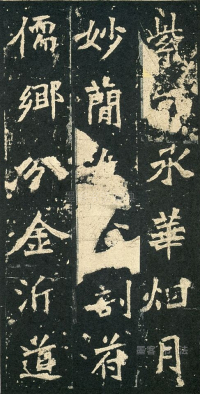 紫承華烟月
妙簡剖符
儒鄉分金沂道